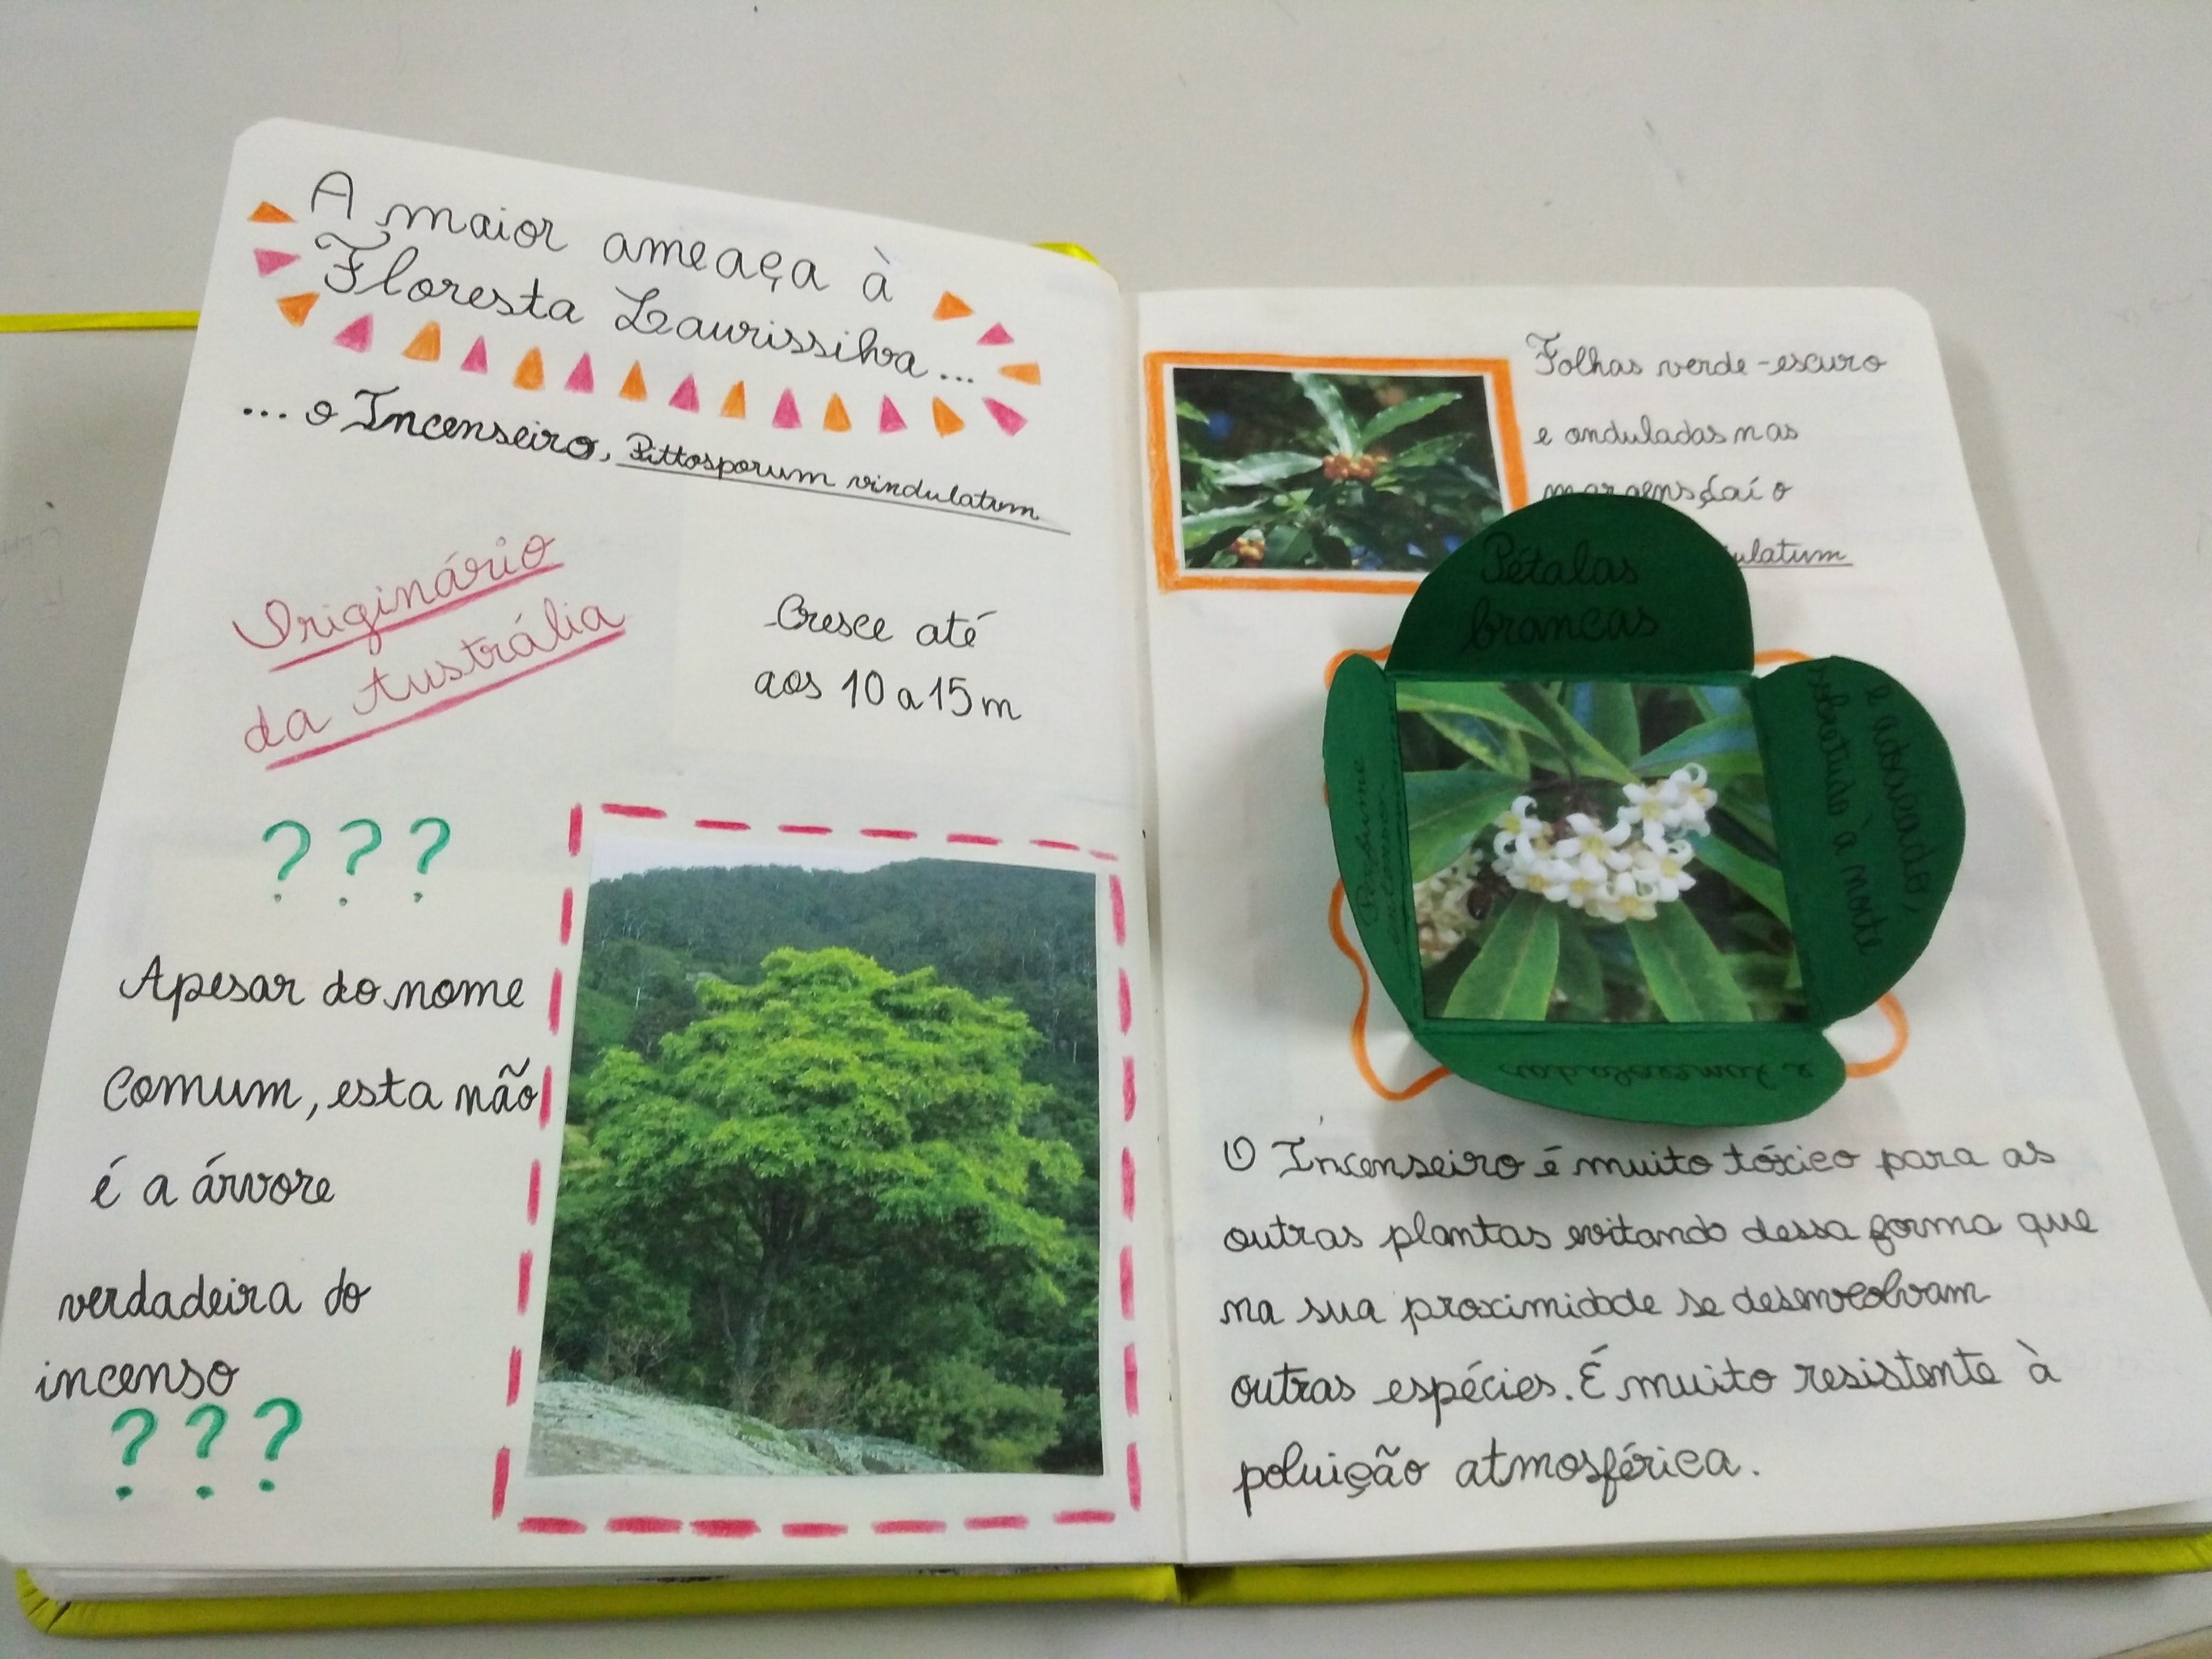 A maior ameaça à
Floresta Laurissilva...
... o Incenseiro, Pittosporum vindulatum
Originário
da Austrália
Cresce até
aos 10 a 15 m
? ? ?
Apesar do nome
comum, esta não
é a árvore
verdadeira do
incenso
? ? ?
Folhas verde-escuro
e onduladas nas
margens, daí o
ulatum
Pétalas
brancas
e adocicado,
sobretudo à noite
Perfume
intenso
O Incenseiro é muito tóxico para as
outras plantas evitando dessa forma que
na sua proximidade se desenvolvam
outras espécies. É muito resistente à
poluição atmosférica.